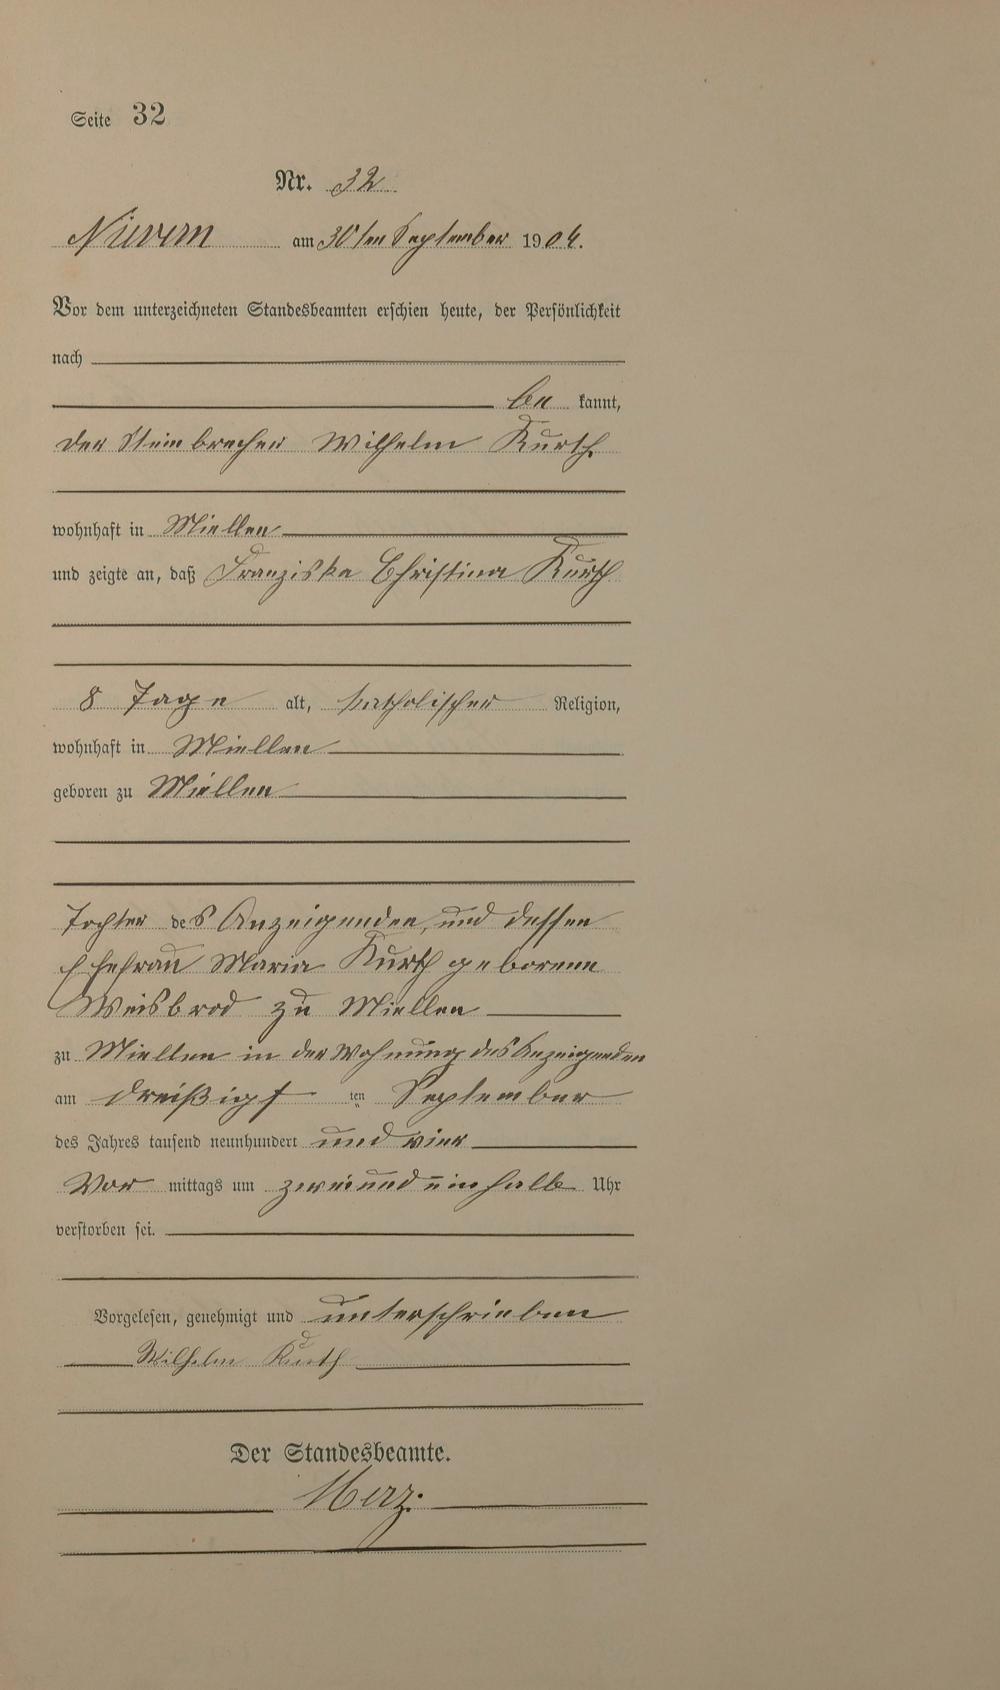 Seite 32
Nr. 32
Nievern am 30ten September 1904.
Vor dem unterzeichneten Standesbeamten erschien heute, der Persönlichkeit
nach
be kannt,
der Steinbrecher Wilhelm Kurth
wohnhaft in Miellen
und zeigte an, daß Franziska Christina Kurth
8 Tage alt, katholischer Religion,
wohnhaft in Miellen
geboren zu Miellen
Tochter des Anzeigenden und dessen
Ehefrau Maria Kurth geborene
Weisbrod zu Miellen
zu Miellen in der Wohnung des Anzeigenden
am dreißigst ten September
des Jahres tausend neunhundert und vier
Vor mittags um zweiundeinhalb Uhr
verstorben sei.
Vorgelesen, genehmigt und unterschrieben
Wilhelm Kurth
Der Standesbeamte.
Merz.